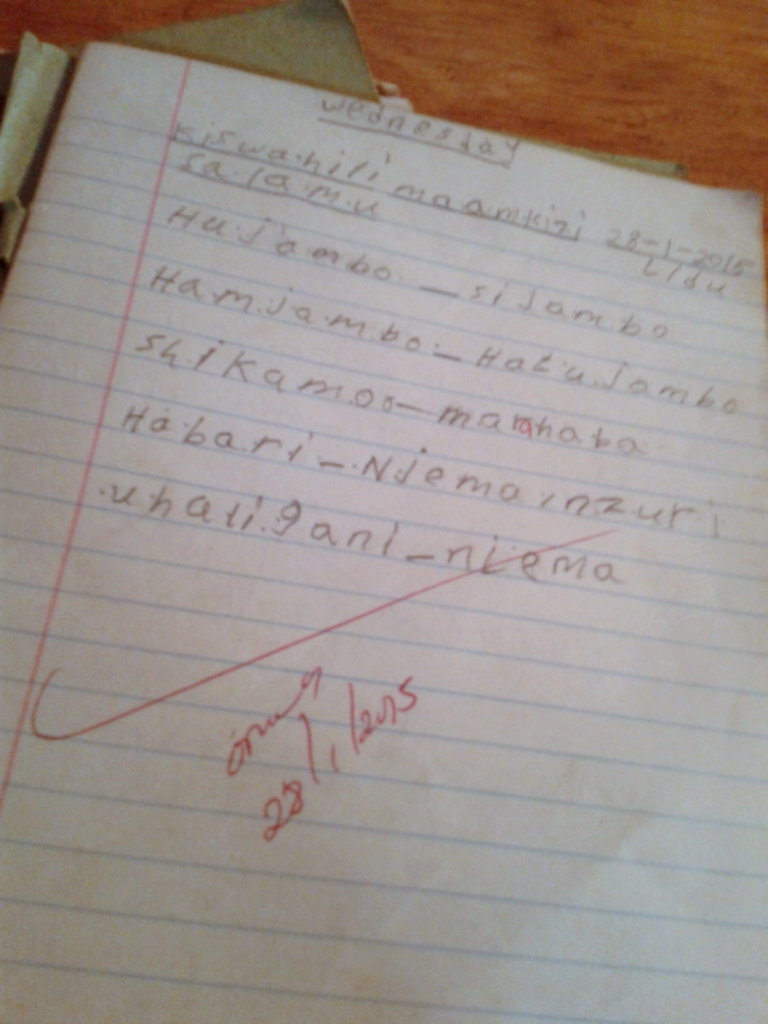 Wednesday
Kiswahili maamkizi 28-1-2015
Salamu
Hujambo - sijambo
Hamjambo - Hatujambo
Shikamoo - marahaba
Habari - Njema, nzuri
uhali gani - njema
28/1/2015